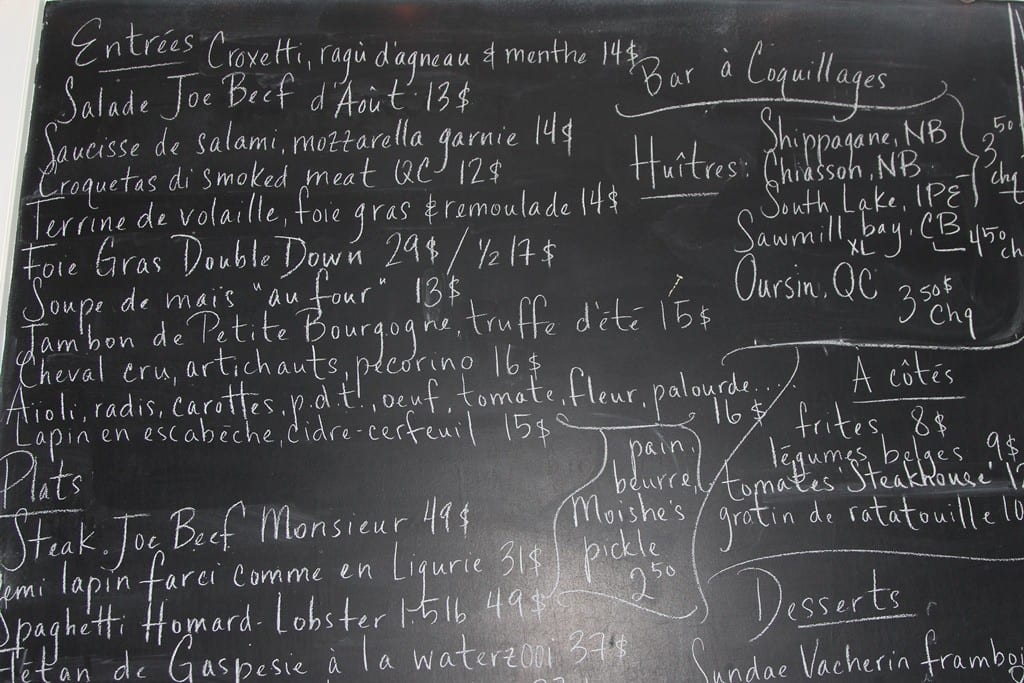 Entrées Croxetti, ragù d'agneau & menthe 14$
Salade Joe Beef d'Août 13$
Saucisse de salami, mozzarella garnie 14$
Croquetas di smoked meat QC 12$
Terrine de volaille, foie gras & remoulade 14$
Foie Gras Double Down 29$ / ½ 17$
Soupe de maïs "au four" 13$
Jambon de Petite Bourgogne, truffe d'été 15$
Cheval cru, artichauts, pecorino 16$
Aioli, radis, carottes, p.d.t., oeuf, tomate, fleur, palourde...
16$
Lapin en escabèche, cidre-cerfeuil 15$
Plats
Steak Joe Beef Monsieur 49$
emi lapin farci comme en Ligurie 31$
Spaghetti Homard-Lobster 1.5lb 49$
létan de Gaspésie à la waterzooi 37$
pain,
beurre,
Moishe's
pickle
2.50
Bar à Coquillages
Huîtres: Shippagane, NB
Chiasson, NB
South Lake, IPE
3.50 chq
Sawmill bay, CB
XL
4.50 ch
Oursin, QC
3.50$ chq
A côtés
frites 8$
légumes belges 9$
tomates Steakhouse
gratin de ratatouille 10
Desserts
Sundae Vacherin framboi